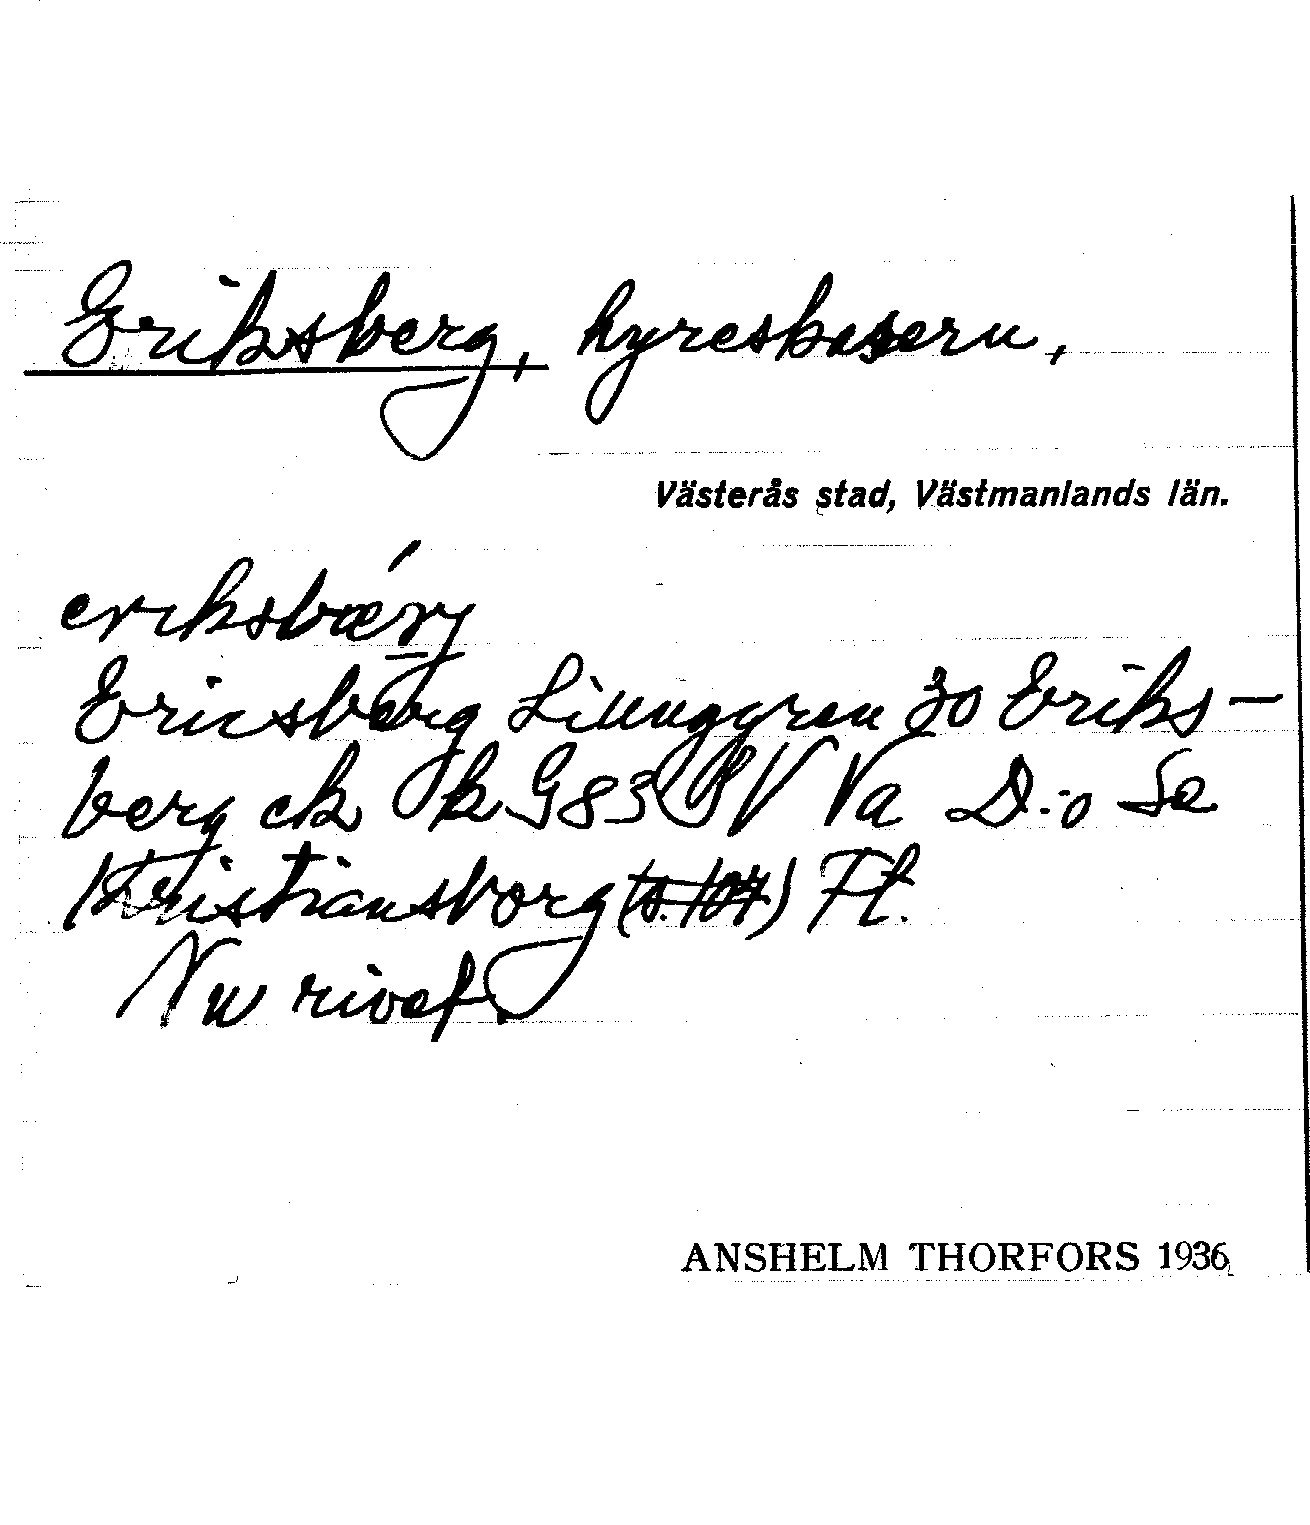 Eriksberg, hyreskasern,
Västerås stad, Västmanlands län.
eriksbærj
Ericsberg Ljunggren 30 Eriks-
berg ek k G 83 BV Va D:o Se
Kristiansborg (s. 104) Ft.
Nu rivet.
ANSHELM THORFORS 1936